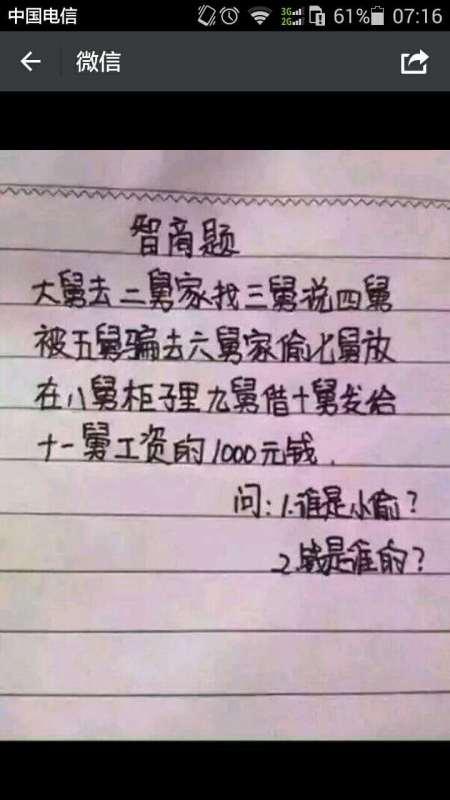 中国电信 3G 2G 61% 07:16
微信
智商题
大舅去二舅家找三舅说四舅
被五舅骗去六舅家偷七舅放
在八舅柜子里九舅借十舅发给
十一舅工资的1000元钱.
问:1.谁是小偷?
2.钱是谁的?